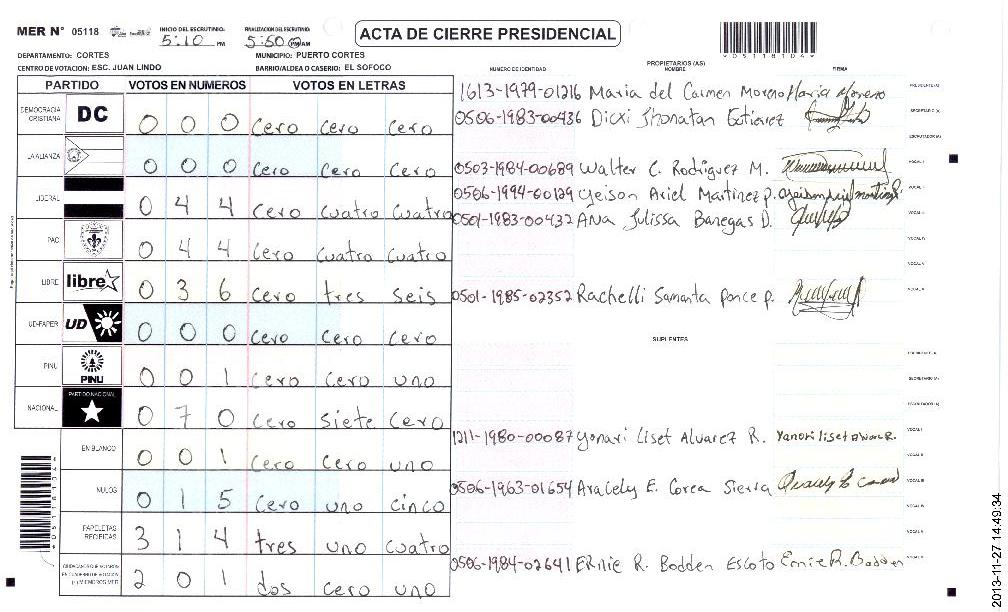 MER N° 05118
INICIO DEL ESCRUTINIO: 5:10 PM
FINALIZACION DEL ESCRUTINIO: 5:50 PM AM
ACTA DE CIERRE PRESIDENCIAL
*05118104*
DEPARTAMENTO: CORTES MUNICIPIO: PUERTO CORTES
CENTRO DE VOTACION: ESC. JUAN LINDO BARRIO/ALDEA O CASERIO: EL SOFOCO
PARTIDO VOTOS EN NUMEROS VOTOS EN LETRAS
DEMOCRACIA CRISTIANA DC 0 0 0 Cero Cero Cero
LA ALIANZA 0 0 0 Cero Cero Cero
LIBERAL 0 4 4 Cero Cuatro Cuatro
PAC 0 4 4 Cero Cuatro Cuatro
LIBRE libre 0 3 6 Cero tres seis
UD-FAPER UD 0 0 0 Cero Cero Cero
PINU PINU 0 0 1 Cero Cero uno
NACIONAL PARTIDO NACIONAL 0 7 0 Cero siete Cero
EN BLANCO 0 0 1 Cero Cero uno
NULOS 0 1 5 Cero uno cinco
PAPELETAS RECIBIDAS 3 1 4 tres uno cuatro
CIUDADANOS QUE VOTARON EN CUADERNO DE VOTACION (+) MIEMBROS MER 2 0 1 dos Cero uno
PROPIETARIOS (AS)
NUMERO DE IDENTIDAD NOMBRE FIRMA
1613-1979-01216 Maria del Carmen Moreno Maria Moreno PRESIDENTE(A)
0506-1983-00436 Dicxi Jhonatan Gutierez SECRETARIO (A)
ESCRUTADOR(A)
0503-1984-00689 Walter C. Rodriguez M. VOCAL I
0506-1994-00129 Geison Ariel Martinez p.
0501-1983-00432 Ana Julissa Banegas D.
0501-1985-02352 Rachelli Samanta Ponce p.
SUPLENTES
1211-1980-00087 Yonari Liset Alvarez R.
0506-1963-01654 Aracely E. Corea Sierra
0506-1984-02641 Ernie R. Bodden Escoto Ernie R. Bodden
2013-11-27 14:49:34